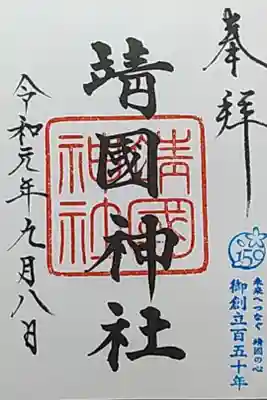 奉拝
靖國神社
靖國神社
令和元年九月八日
150
未来へつなぐ 靖國の心
御創立百五十年